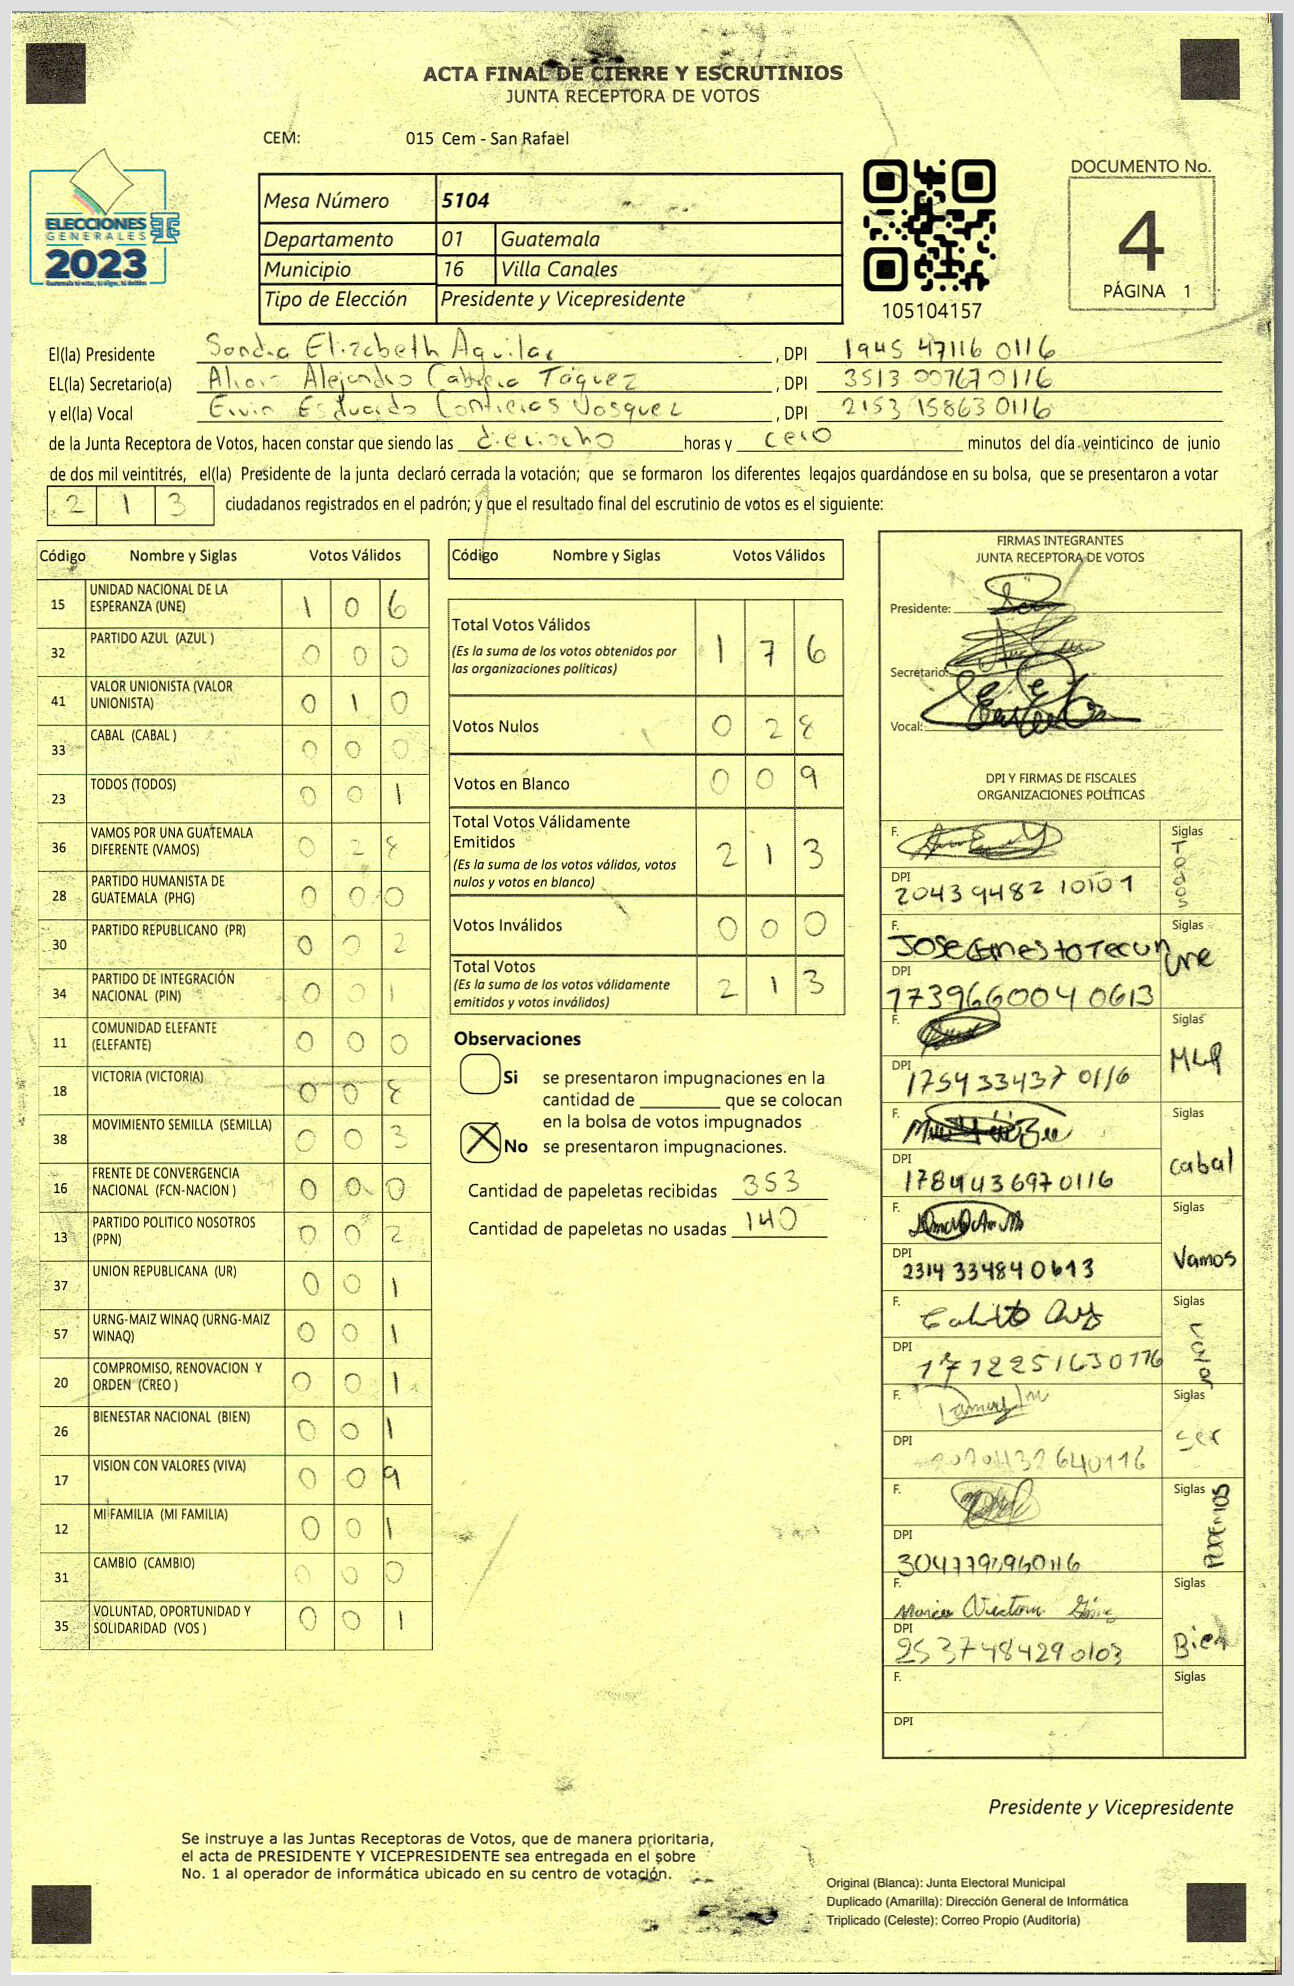 ACTA FINAL DE CIERRE Y ESCRUTINIOS
JUNTA RECEPTORA DE VOTOS
CEM: 015 Cem - San Rafael
ELECCIONES
GENERALES
2023
Mesa Número 5104
Departamento 01 Guatemala
Municipio 16 Villa Canales
Tipo de Elección Presidente y Vicepresidente
105104157
DOCUMENTO No.
4
PÁGINA 1
El(la) Presidente Sandra Elizabeth Aguilar , DPI 1945 47116 0116
EL(la) Secretario(a) Alejandro Cabrera Táquez , DPI 3513 00767 0116
y el(la) Vocal Ervin Estuardo Contreras Vasquez , DPI 2153 15863 0116
de la Junta Receptora de Votos, hacen constar que siendo las dieciocho horas y cero minutos del día veinticinco de junio
de dos mil veintitrés, el(la) Presidente de la junta declaró cerrada la votación; que se formaron los diferentes legajos guardándose en su bolsa, que se presentaron a votar
2 1 3 ciudadanos registrados en el padrón; y que el resultado final del escrutinio de votos es el siguiente:
Código Nombre y Siglas Votos Válidos
15 UNIDAD NACIONAL DE LA ESPERANZA (UNE) 1 0 6
32 PARTIDO AZUL (AZUL ) 0 0 0
41 VALOR UNIONISTA (VALOR UNIONISTA) 0 1 0
33 CABAL (CABAL ) 0 0 0
23 TODOS (TODOS) 0 0 1
36 VAMOS POR UNA GUATEMALA DIFERENTE (VAMOS) 0 2 8
28 PARTIDO HUMANISTA DE GUATEMALA (PHG) 0 0 0
30 PARTIDO REPUBLICANO (PR) 0 0 2
34 PARTIDO DE INTEGRACIÓN NACIONAL (PIN) 0 0 1
11 COMUNIDAD ELEFANTE (ELEFANTE) 0 0 0
18 VICTORIA (VICTORIA) 0 0 8
38 MOVIMIENTO SEMILLA (SEMILLA) 0 0 3
16 FRENTE DE CONVERGENCIA NACIONAL (FCN-NACION ) 0 0 0
13 PARTIDO POLITICO NOSOTROS (PPN) 0 0 2
37 UNION REPUBLICANA (UR) 0 0 1
57 URNG-MAIZ WINAQ (URNG-MAIZ WINAQ) 0 0 1
20 COMPROMISO, RENOVACION Y ORDEN (CREO ) 0 0 1
26 BIENESTAR NACIONAL (BIEN) 0 0 1
17 VISION CON VALORES (VIVA) 0 0 9
12 MI FAMILIA (MI FAMILIA) 0 0 1
31 CAMBIO (CAMBIO) 0 0 0
35 VOLUNTAD, OPORTUNIDAD Y SOLIDARIDAD (VOS ) 0 0 1
Código Nombre y Siglas Votos Válidos
Total Votos Válidos 1 7 6
(Es la suma de los votos obtenidos por
las organizaciones políticas)
Votos Nulos 0 2 8
Votos en Blanco 0 0 9
Total Votos Válidamente
Emitidos 2 1 3
(Es la suma de los votos válidos, votos
nulos y votos en blanco)
Votos Inválidos 0 0 0
Total Votos 2 1 3
(Es la suma de los votos válidamente
emitidos y votos inválidos)
Observaciones
Si se presentaron impugnaciones en la
cantidad de ________ que se colocan
en la bolsa de votos impugnados
X No se presentaron impugnaciones.
Cantidad de papeletas recibidas 353
Cantidad de papeletas no usadas 140
FIRMAS INTEGRANTES
JUNTA RECEPTORA DE VOTOS
Presidente:
Secretario:
Vocal:
DPI Y FIRMAS DE FISCALES
ORGANIZACIONES POLÍTICAS
F. Siglas Todos
DPI 20439482 10101
F. Jose Ernesto Tecun Siglas Une
DPI 1739660040613
F. Siglas MLP
DPI 175433437 0116
F. Siglas cabal
DPI 1784436970116
F. Siglas Vamos
DPI 2314 33484 0613
F. Siglas Valor
DPI 1712251630116
F. Siglas Ser
DPI
F. Siglas PODEMOS
DPI
F. Maria Victoria Siglas Bien
DPI 2537484290103
F. Siglas
DPI
Presidente y Vicepresidente
Se instruye a las Juntas Receptoras de Votos, que de manera prioritaria,
el acta de PRESIDENTE Y VICEPRESIDENTE sea entregada en el sobre
No. 1 al operador de informática ubicado en su centro de votación.
Original (Blanca): Junta Electoral Municipal
Duplicado (Amarilla): Dirección General de Informática
Triplicado (Celeste): Correo Propio (Auditoría)